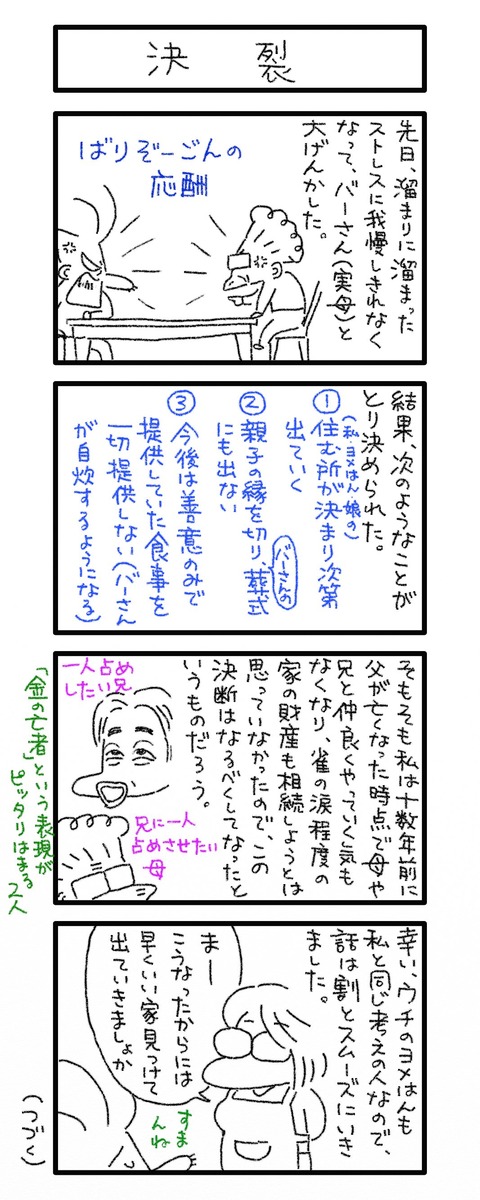 決裂
先日、溜まりに溜まった
ストレスに我慢しきれなく
なって、バーさん(実母)と
大げんかした。
ばりぞーごんの
応酬
結果、次のようなことが
とり決められた。
(私・ヨメはん・娘の)
①住む所が決まり次第
出ていく
②親子の縁を切り、葬式
にも出ない
バーさんの
③今後は善意のみで
提供していた食事を
一切提供しない(バーさん
が自炊するようになる)
そもそも私は十数年前に
父が亡くなった時点で母や
兄と仲良くやっていく気も
なくなり、雀の涙程度の
家の財産も相続しようとは
思っていなかったので、この
決断はなるべくしてなったと
いうものだろう。
一人占め
したい兄
兄に一人
占めさせたい
母
「金の亡者」という表現が
ピッタリはまる
2人
幸い、ウチのヨメはんも
私と同じ考えの人なので、
話は割とスムーズにいき
ました。
まー
こうなったからには
早くいい家見つけて
出ていきましょか
すま
んね
(つづく)